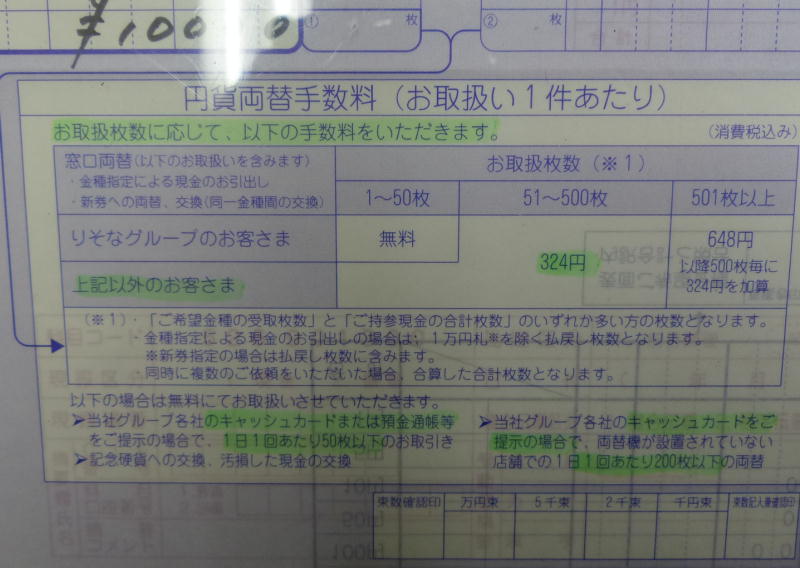 ¥10000
① 枚
② 枚
円貨両替手数料（お取扱い1件あたり）
お取扱枚数に応じて、以下の手数料をいただきます。
（消費税込み）
窓口両替（以下のお取扱いを含みます）
・金種指定による現金のお引出し
・新券への両替、交換（同一金種間の交換）
お取扱枚数（※1）
1～50枚
51～500枚
501枚以上
りそなグループのお客さま
無料
324円
648円
以降500枚毎に
324円を加算
上記以外のお客さま
（※1）・「ご希望金種の受取枚数」と「ご持参現金の合計枚数」のいずれか多い方の枚数となります。
・金種指定による現金のお引出しの場合は、1万円札※を除く払戻し枚数となります。
※新券指定の場合は払戻し枚数に含みます。
同時に複数のご依頼をいただいた場合、合算した合計枚数となります。
以下の場合は無料にてお取扱いさせていただきます。
➤当社グループ各社のキャッシュカードまたは預金通帳等
をご提示の場合で、1日1回あたり50枚以下のお取引き
➤記念硬貨への交換、汚損した現金の交換
➤当社グループ各社のキャッシュカードをご
提示の場合で、両替機が設置されていない
店舗での1日1回あたり200枚以下の両替
束数確認印
万円束
5千束
2千束
千円束
束数記入兼確認印